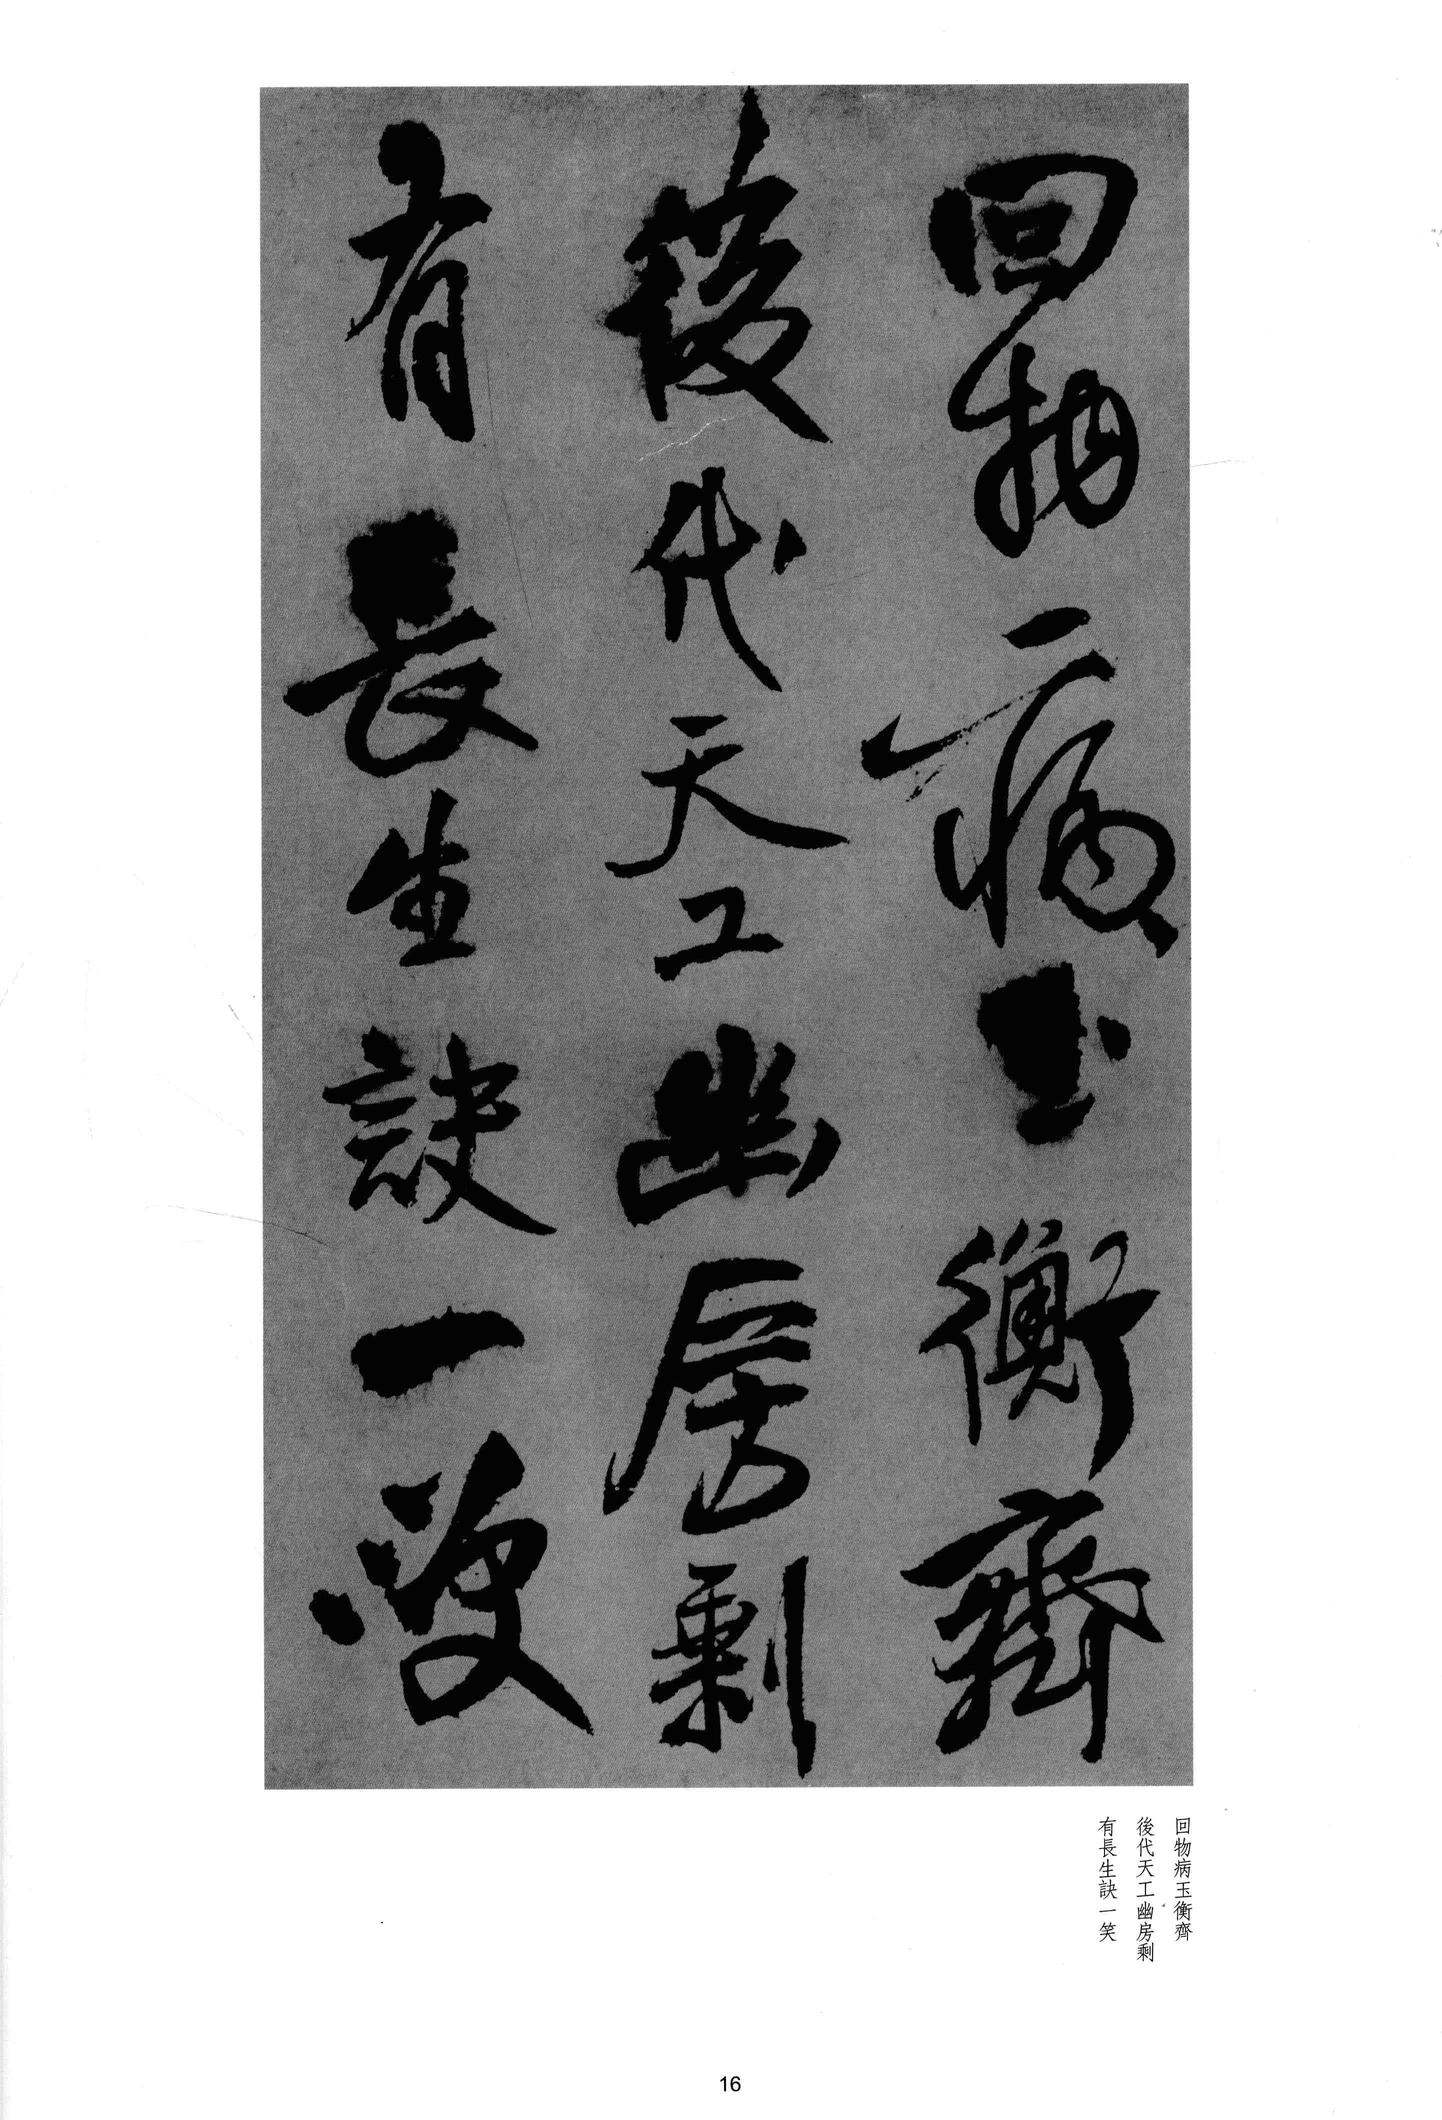 回物病玉衡齊
後代天工幽房剩
有長生訣一笑
回物病玉衡齊
後代天工幽房剩
有長生訣一笑
16